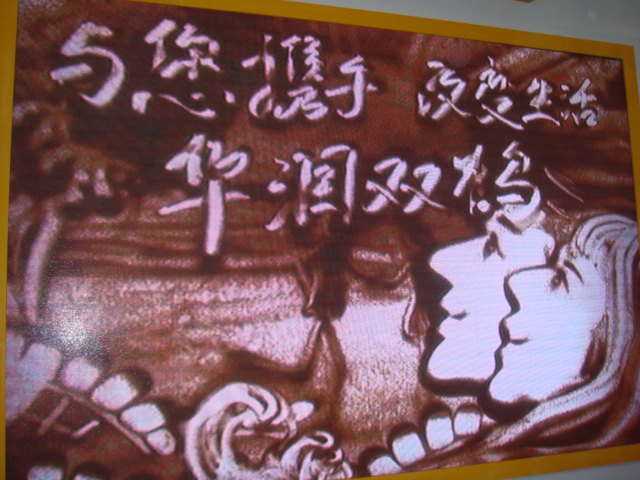 与您携手 改变生活
华润双鹤